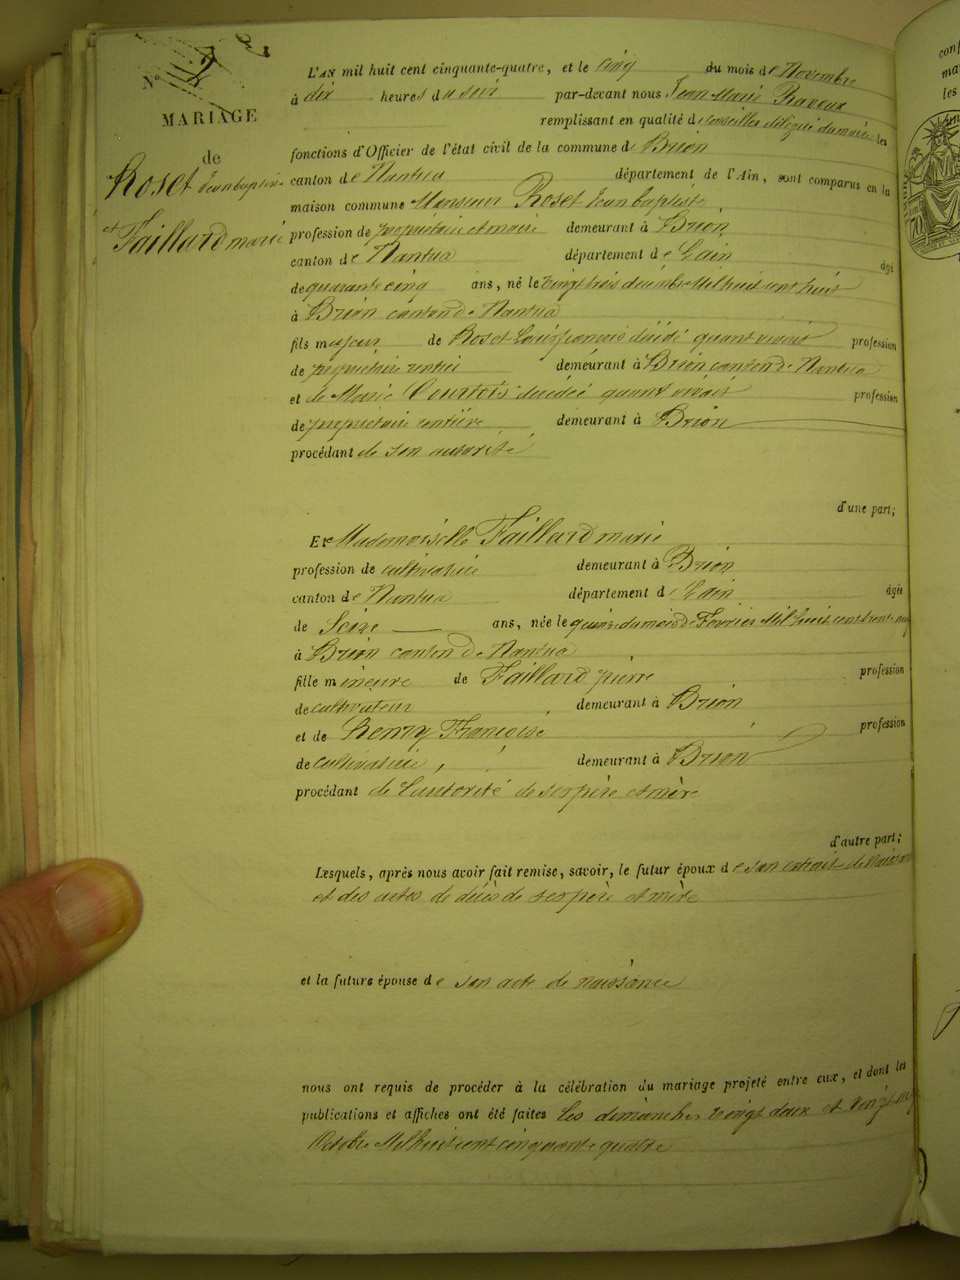 N°
MARIAGE
de
Roset Jean baptiste
et Faillard marie
L'AN mil huit cent cinquante-quatre, et le cinq du mois de Novembre
à dix heures du soir par-devant nous Jean Marie Ravoux
remplissant en qualité de conseiller délégué du maire les
fonctions d'Officier de l'état civil de la commune de Brion
canton de Nantua département de l'Ain, sont comparus en la
maison commune Monsieur Roset Jean baptiste
profession de propriétaire et maire demeurant à Brion
canton de Nantua département de Lain âgé
de quarante cinq ans, né le vingt trois décembre Mil huit cent huit
à Brion canton de Nantua
fils majeur de Roset Louis françois décédé quant vivait profession
de propriétaire rentier demeurant à Brion canton de Nantua
et de Marie Courtois décédée quant vivait profession
de propriétaire rentière demeurant à Brion
procédant de son autorité
d'une part;
Et Mademoiselle Faillard marie
profession de cultivatrice demeurant à Brion
canton de Nantua département de Lain âgée
de Seize ans, née le quinze du mois de Février Mil huit cent trente
à Brion canton de Nantua
fille mineure de Faillard pierre profession
de cultivateur demeurant à Brion
et de Henry Françoise profession
de cultivatrice, demeurant à Brion
procédant de l'autorité de ses père et mère
d'autre part;
Lesquels, après nous avoir fait remise, savoir, le futur époux de son extrait de naissance
et des actes de décès de ses père et mère
et la future épouse de son acte de naissance
nous ont requis de procéder à la célébration du mariage projeté entre eux, et dont les
publications et affiches ont été faites les dimanches vingt deux et vingt neuf
Octobre Mil huit cent cinquante quatre